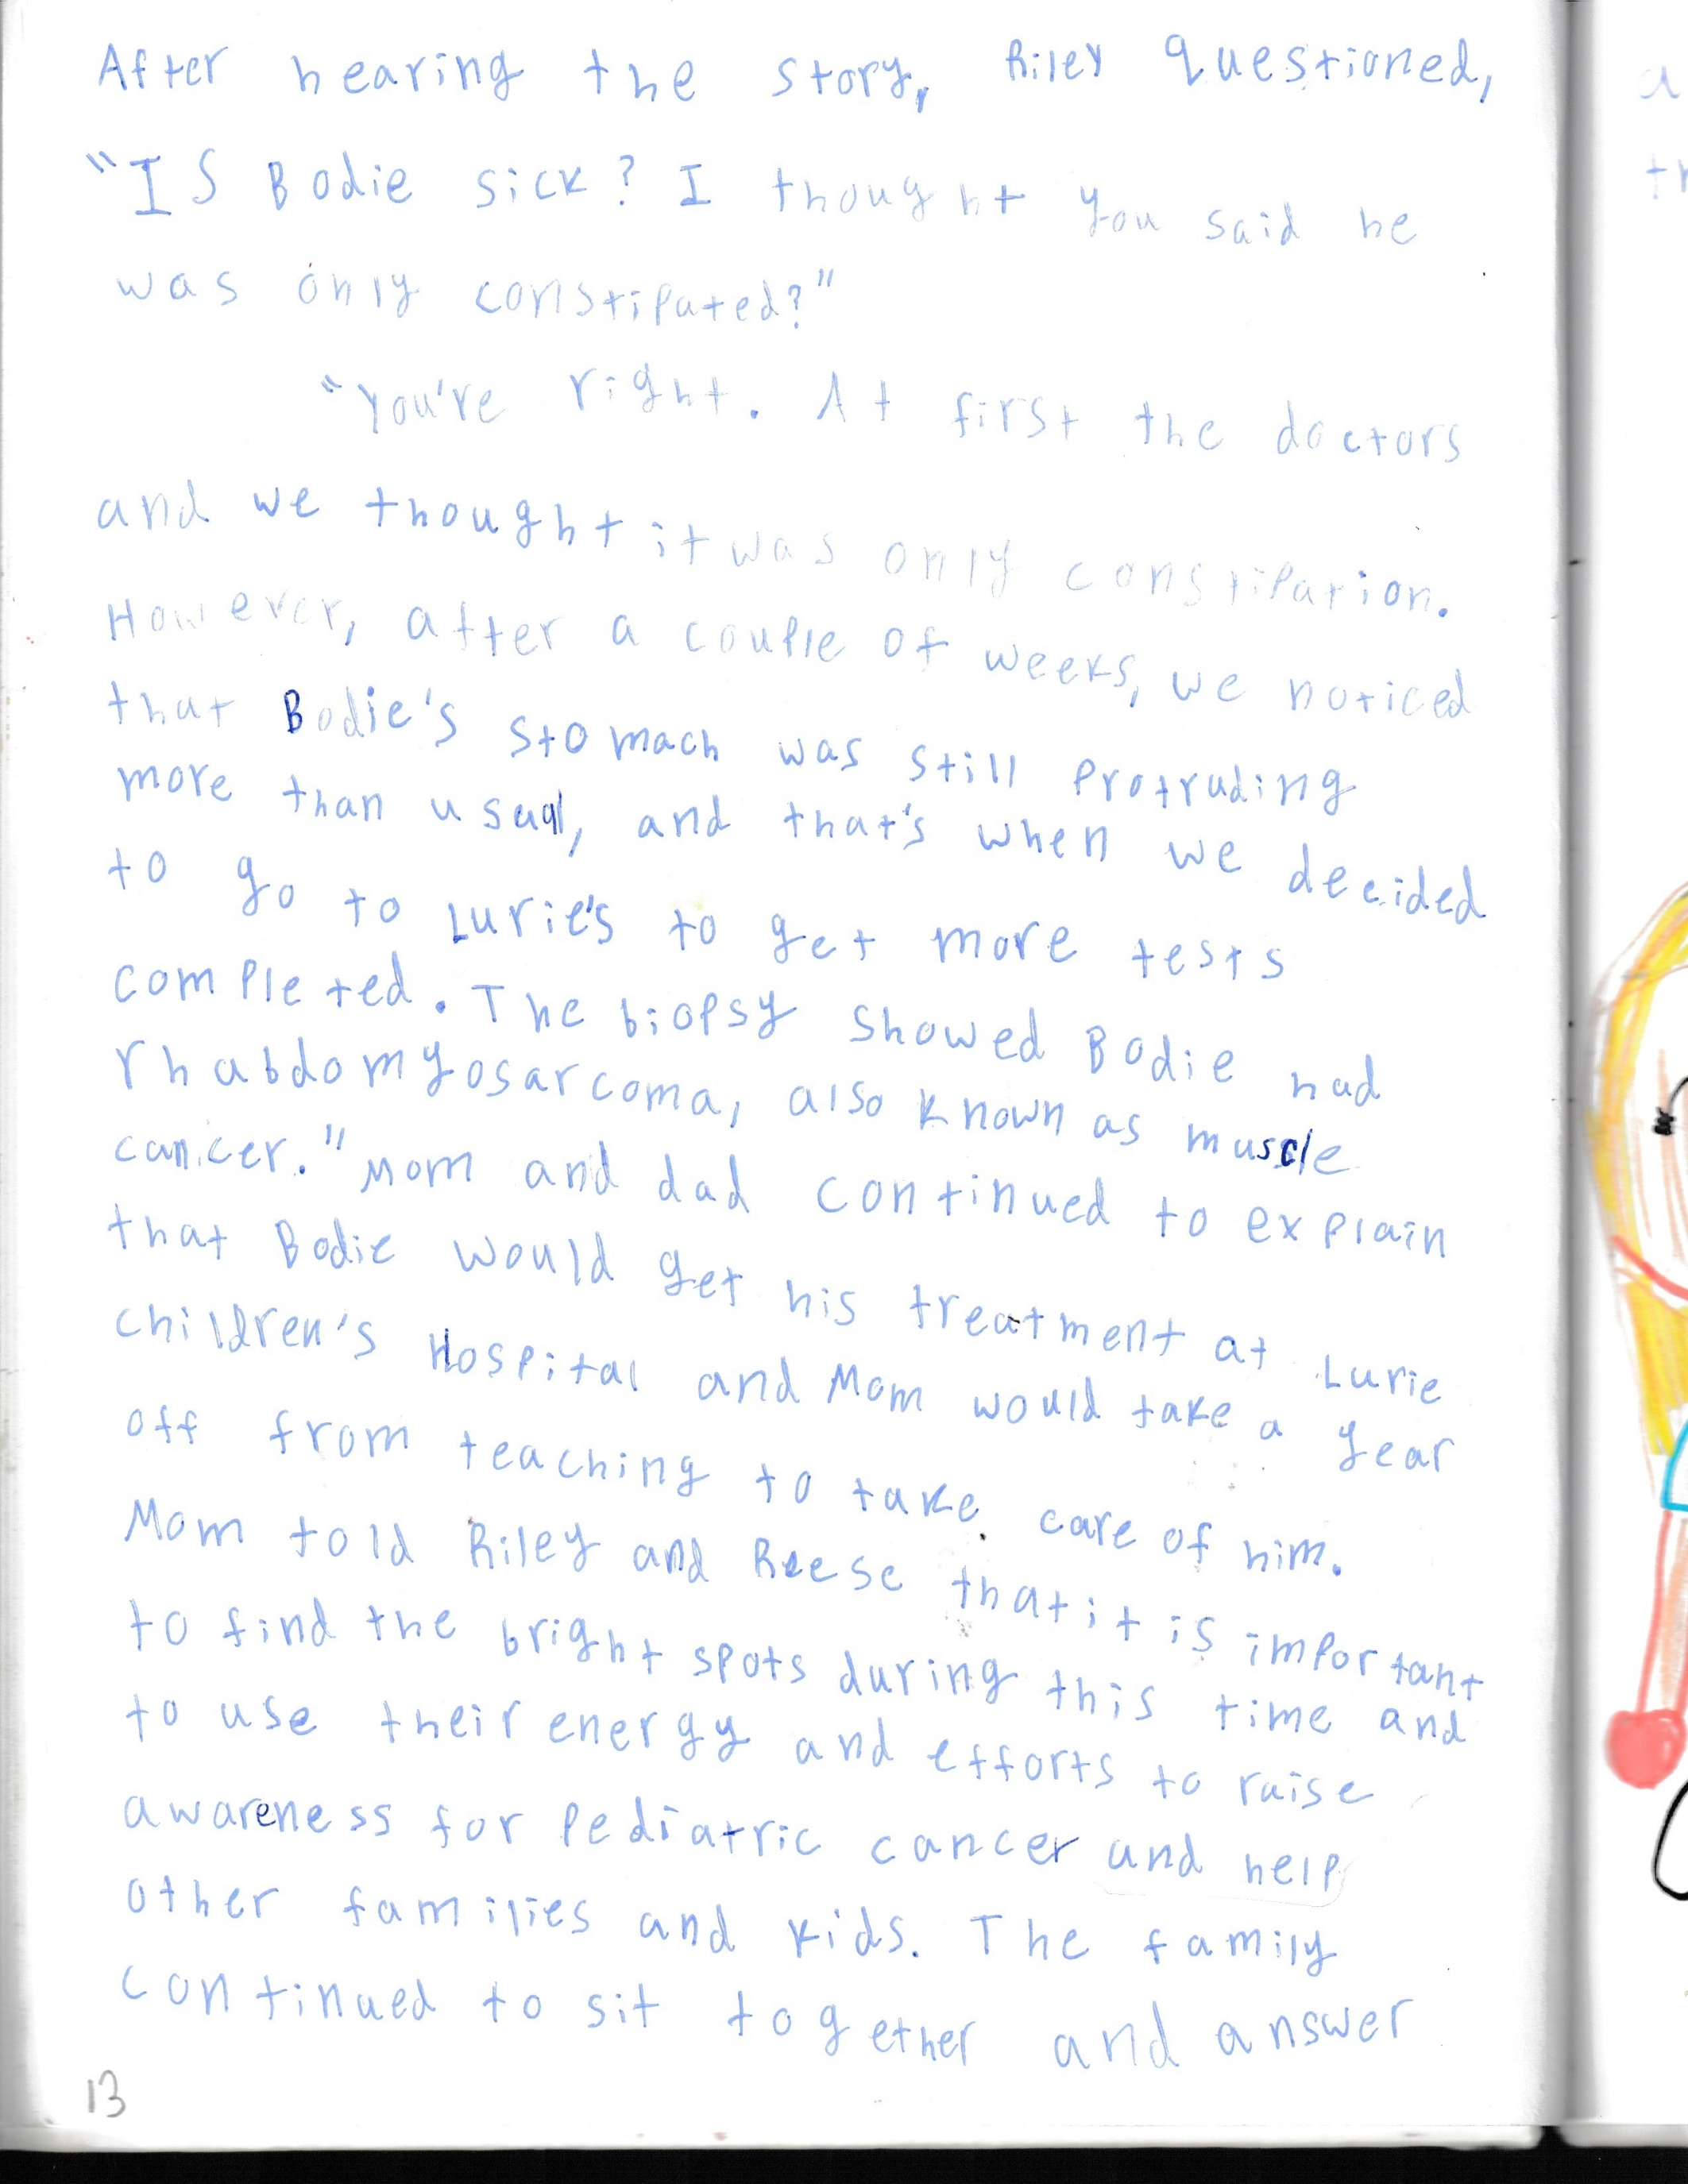 After hearing the story, Riley questioned,
"IS Bodie sick? I thought you said he
was only constipated?"
"You're right. At first the doctors
and we thought it was only constipation.
However, after a couple of weeks, we noticed
that Bodie's stomach was still protruding
more than usual, and that's when we decided
to go to Lurie's to get more tests
completed. The biopsy showed Bodie had
rhabdomyosarcoma, also known as muscle
cancer." Mom and dad continued to explain
that Bodie would get his treatment at Lurie
Children's Hospital and Mom would take a year
off from teaching to take care of him.
Mom told Riley and Reese that it is important
to find the bright spots during this time and
to use their energy and efforts to raise
awareness for Pediatric cancer and help
other families and kids. The family
continued to sit together and answer
13